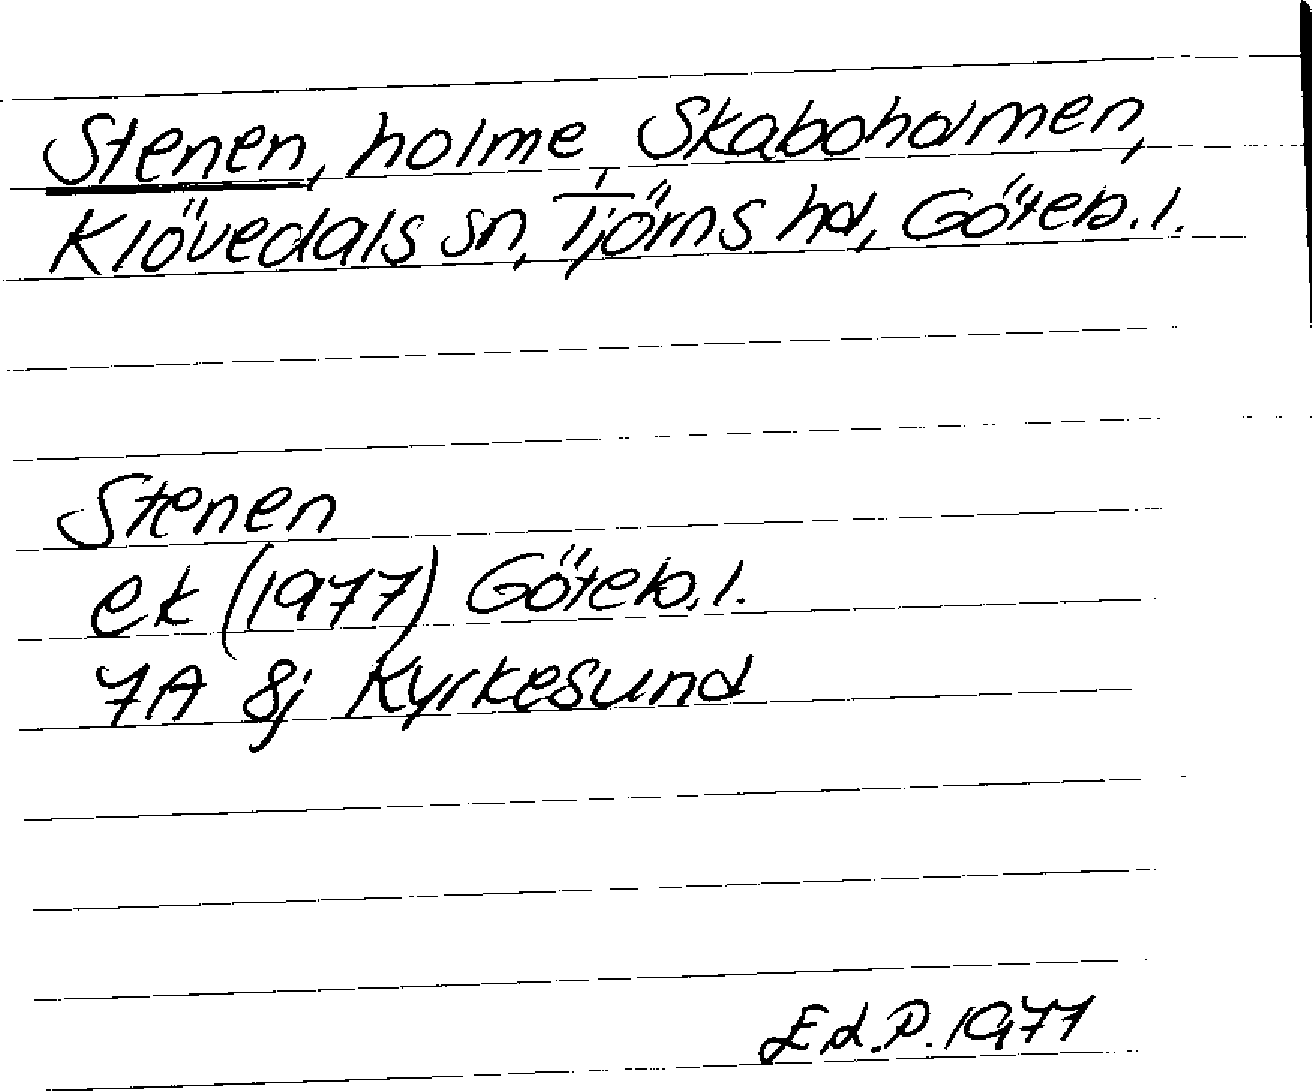 Stenen, holme, Skaboholmen,
Klövedals sn, Tjörns hd, Göteb. l.
Stenen
ek (1977) Göteb. l.
7A 8j Kyrkesund
Ed.P. 1977